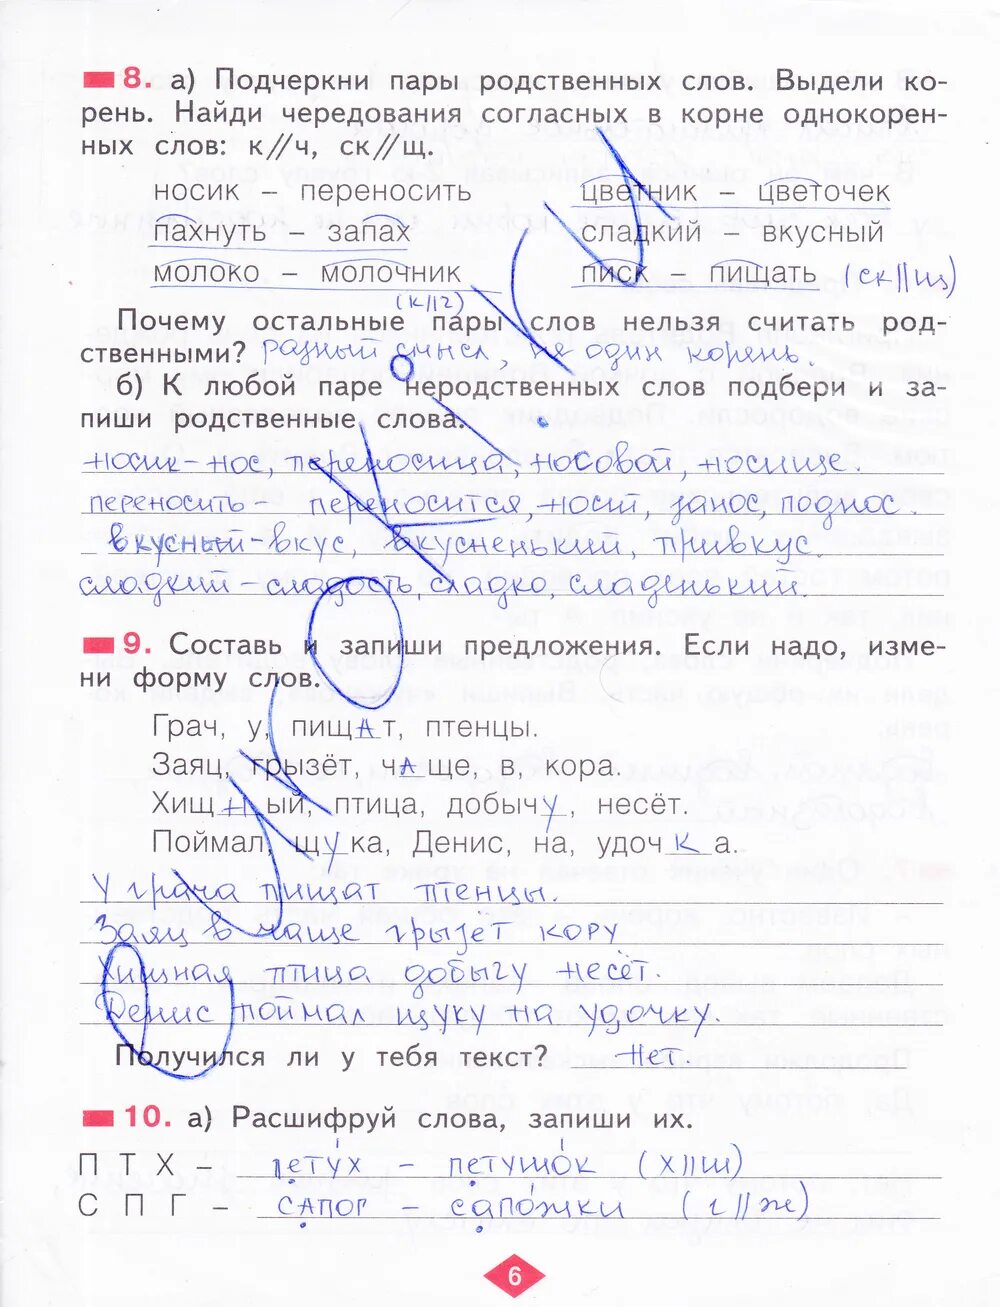 8. а) Подчеркни пары родственных слов. Выдели ко-
рень. Найди чередования согласных в корне однокорен-
ных слов: к//ч, ск//щ.
носик – переносить цветник – цветочек
пахнуть – запах сладкий – вкусный
молоко – молочник писк – пищать (ск||щ)
(к||ч)
Почему остальные пары слов нельзя считать род-
ственными? разный смысл, не один корень.
б) К любой паре неродственных слов подбери и за-
пиши родственные слова.
носик – нос, переносица, носовой, носище.
переносить – переносится, носит, занос, поднос.
вкусный – вкус, вкусненький, привкус.
сладкий – сладость, сладко, сладенький.
9. Составь и запиши предложения. Если надо, изме-
ни форму слов.
Грач, у, пищат, птенцы.
Заяц, грызёт, чаще, в, кора.
Хищный, птица, добычу, несёт.
Поймал, щука, Денис, на, удочка.
У грача пищат птенцы.
Заяц в чаще грызёт кору
Хищная птица добычу несёт.
Денис поймал щуку на удочку.
Получился ли у тебя текст? Нет
10. а) Расшифруй слова, запиши их.
П Т Х – петух – петушок (х||ш)
С П Г – сапог – сапожки (г||ж)
6